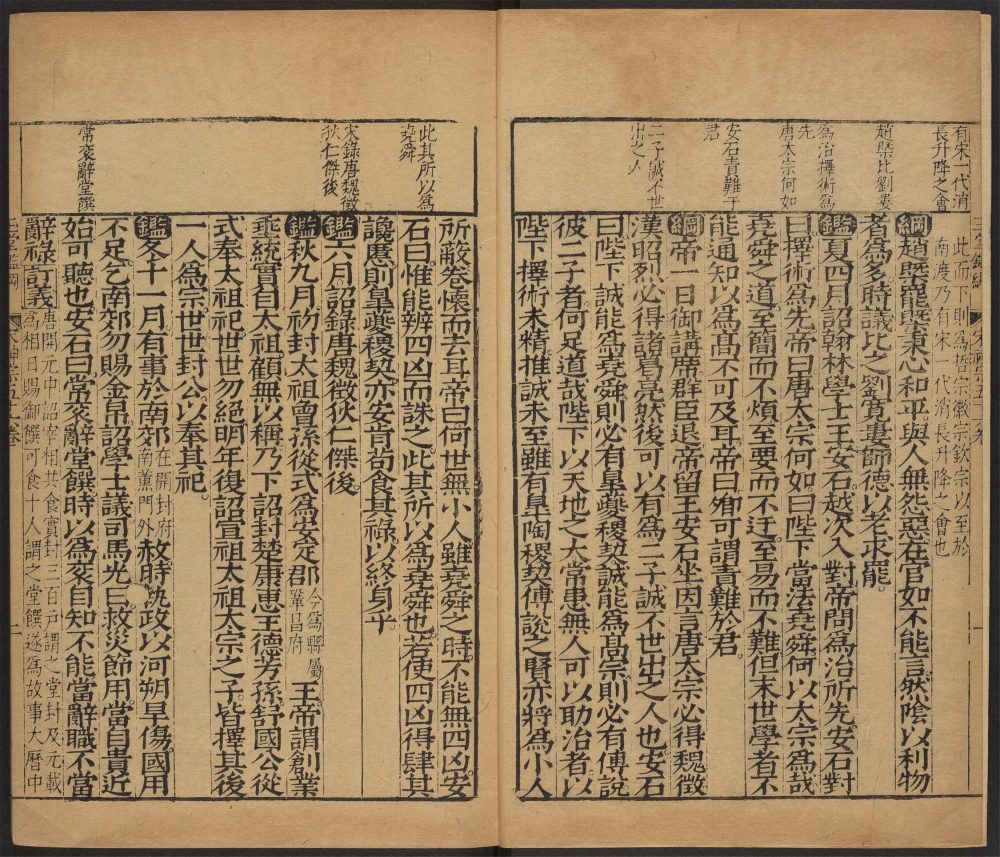 有宋一代消
長升降之會
趙槩比劉婁
為治擇術為
先
唐太宗何如
安石責難于
君
二子誠不世
出之人
此而下則為哲宗徽宗欽宗以至於
南渡乃有宋一代消長升降之會也
綱趙槩罷槩秉心和平與人無怨惡在官如不能言然陰以利物
者為多時議比之劉寬婁師德以老求罷
鑑夏四月詔翰林學士王安石越次入對帝問為治所先安石對
曰擇術為先帝曰唐太宗何如曰陛下當法堯舜何以太宗為哉
堯舜之道至簡而不煩至要而不迂至易而不難但末世學者不
能通知以為高不可及耳帝曰卿可謂責難於君
綱帝一日御講席群臣退帝留王安石坐因言唐太宗必得魏徵
漢昭烈必得諸葛亮然後可以有為二子誠不世出之人也安石
曰陛下誠能為堯舜則必有皐夔稷契誠能為高宗則必有傅說
彼二子者何足道哉陛下以天地之大常患無人可以助治者以
陛下擇術未精推誠未至雖有皐陶稷契傅說之賢亦將為小人
此其所以為
堯舜
宋錄唐魏徵
狄仁傑後
常袞辭堂饌
所蔽卷懷而去耳帝曰何世無小人雖堯舜之時不能無四凶安
石曰惟能辨四凶而誅之此其所以為堯舜也若使四凶得肆其
讒慝則皐夔稷契亦安肯苟食其祿以終身乎
鑑六月詔錄唐魏徵狄仁傑後
鑑秋九月初封太祖曾孫從式為安定郡今為縣屬鞏昌府王帝謂創業
垂統實自太祖顧無以稱乃下詔封楚康惠王德芳孫舒國公從
式奉太祖祀世世勿絕明年復詔宣祖太祖太宗之子皆擇其後
一人為宗世世封公以奉其祀
鑑冬十一月有事於南郊在開封府南薰門外赦時執政以河朔旱傷國用
不足乞南郊勿賜金帛詔學士議司馬光曰救災節用當自貴近
始可聽也安石曰常袞辭堂饌時以為袞自知不能當辭職不當
辭祿訂義唐開元中詔宰相共食實封三百戶謂之堂封及元載
為相日賜御饌可食十人謂之堂饌遂為故事大曆中